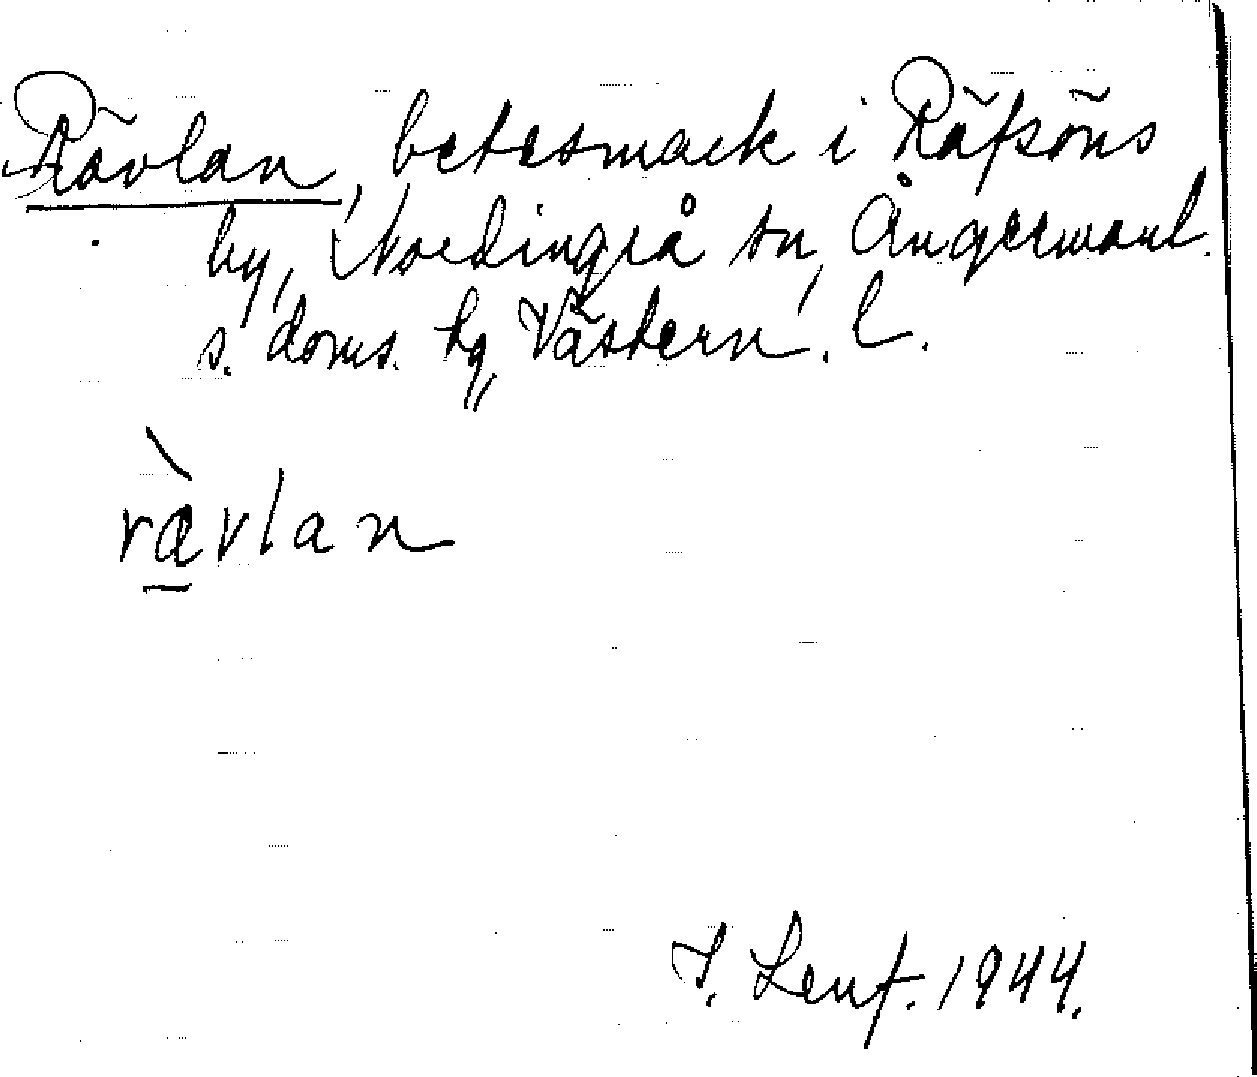 Rävlan, betesmark i Räfsöns
by, Nordingrå sn, Ångermanl.
s. doms. hg, Västern. l.
rævlan
1944.